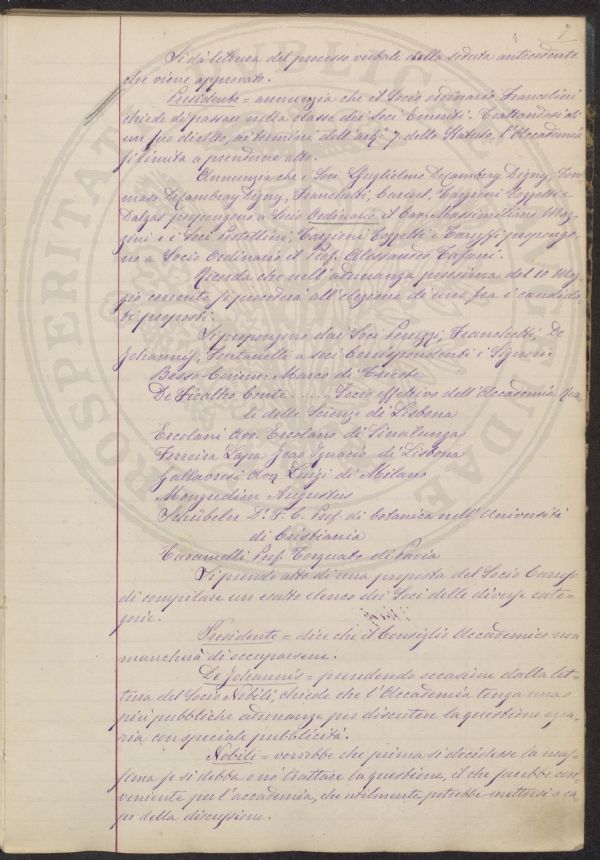 7
Si dà lettura del processo verbale della seduta antecedente
che viene approvato.
Presidente = annunzia che il Socio ordinario Francolini
chiede di passare nella classe dei Soci Emeriti. Trattandosi di
un suo diritto, ai termini dell'art.º 7 dello Statuto, l'Accademia
si limita a prendere atto.
Annunzia che i Soci Guglielmo DeCambray Digny, Tom-
maso DeCambray Digny, Franchetti, Caruel, Targioni Tozzetti e
Dalgas propongono a Socio Ordinario il Cav. Massimiliano
e i Soci Pestellini, Targioni Tozzetti e Caruso propongo-
no a Socio Ordinario il Prof. Alessandro Tafani.
Ricorda che nell'adunanza prossima del 10 Mag-
gio corrente si procederà all'elezione di uno fra i candida-
ti proposti.
Si propongono dai Soci Peruzzi, Franchetti, De
Johannis, Fontanelli a soci Corrispondenti i Signori
Besso Marco di Trieste
De Ficalho Conte ........ Socio effettivo dell'Accademia Rea-
le delle Scienze di Lisbona
Ercolani Avv. Ercolano di Sinalunga
Ferreira Lapa Joao Ignacio di Lisbona
Gallavresi Avv. Luigi di Milano
Mongredien Augustus
Schübeler D.r F. C. Prof. di botanica nell'Università
di Cristiania
Taramelli Prof. Torquato di Pavia
Si prende atto di una proposta del Socio Caruso
di compilare un esatto elenco dei Soci delle diverse cate-
gorie.
Presidente = dice che il Consiglio Accademico non
mancherà di occuparsene.
De Johannis = prendendo occasione dalla let-
tura del Socio Nobili, chiede che l'Accademia tenga una o
più pubbliche adunanze per discutere la questione agra-
ria, con speciale pubblicità.
Nobili = vorrebbe che prima si decidesse la mas-
sima se si debba o nò trattare la questione, il che sarebbe con-
veniente per l'accademia, che utilmente potrebbe mettersi a ca-
po della discussione.